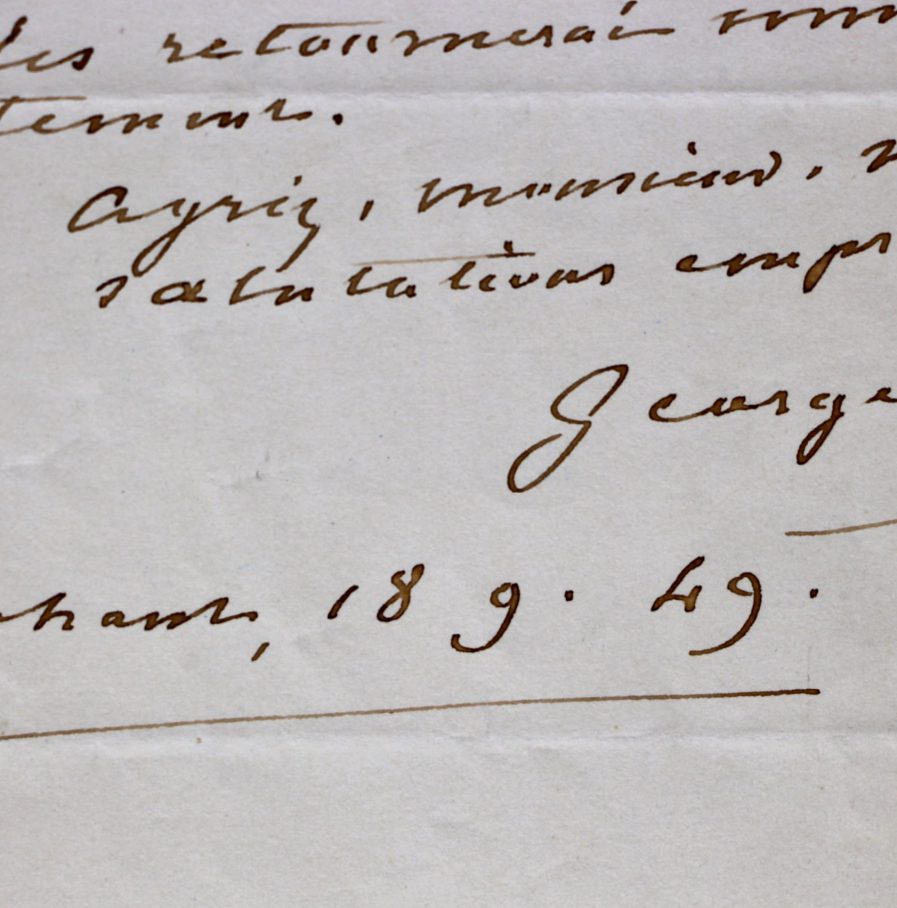 les retournerai imm
tement.
Agréez, monsieur, m
salutations empr
George
hant, 18 9. 49.